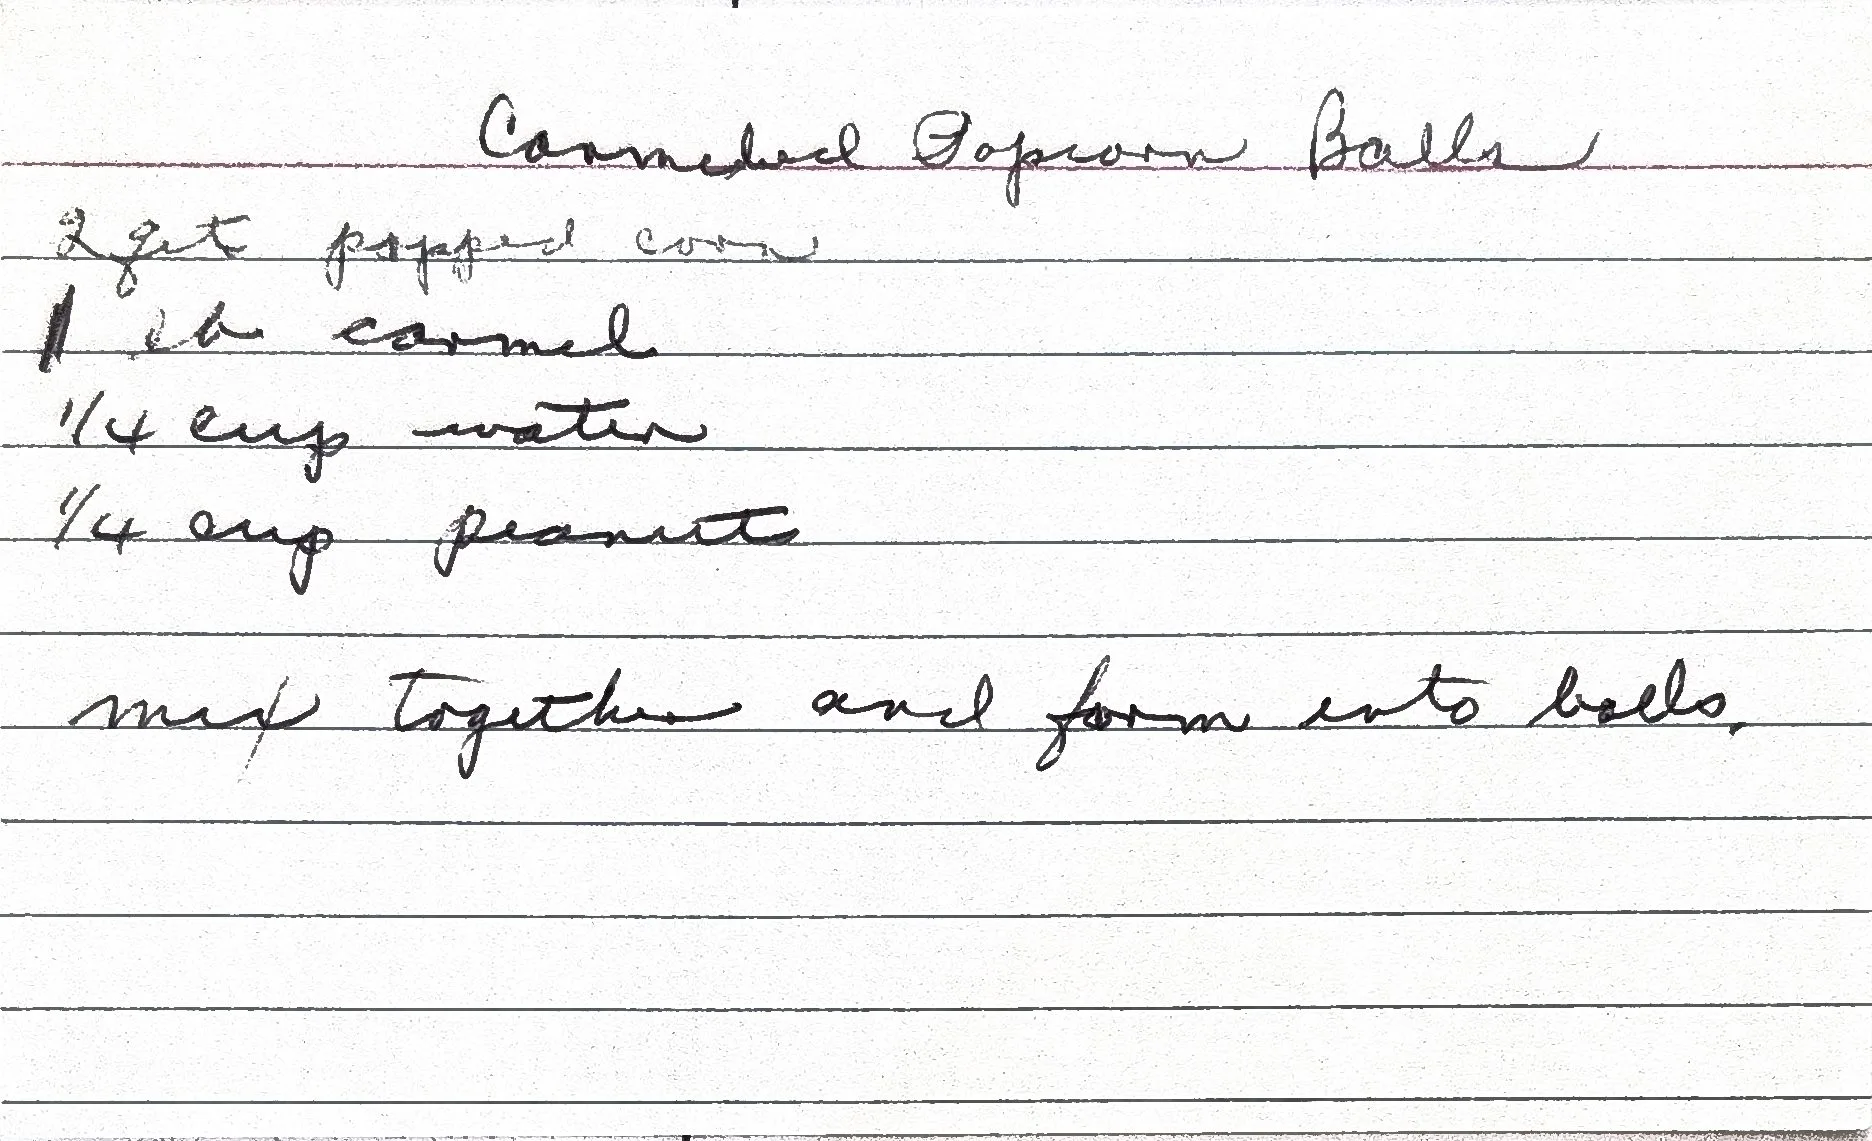 Carmeled Popcorn Balls
2 qt popped corn
1 lb carmel
1/4 cup water
1/4 cup peanuts
mix together and form into balls.